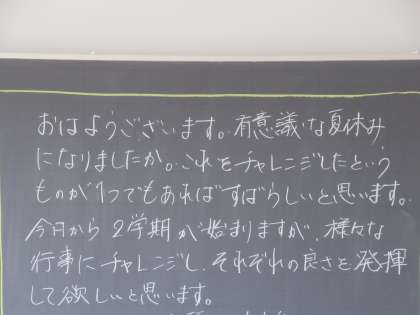 おはようございます。有意義な夏休み
になりましたか。これをチャレンジしたという
ものが1つでもあればすばらしいと思います。
今日から2学期が始まりますが、様々な
行事にチャレンジし、それぞれの良さを発揮
して欲しいと思います。